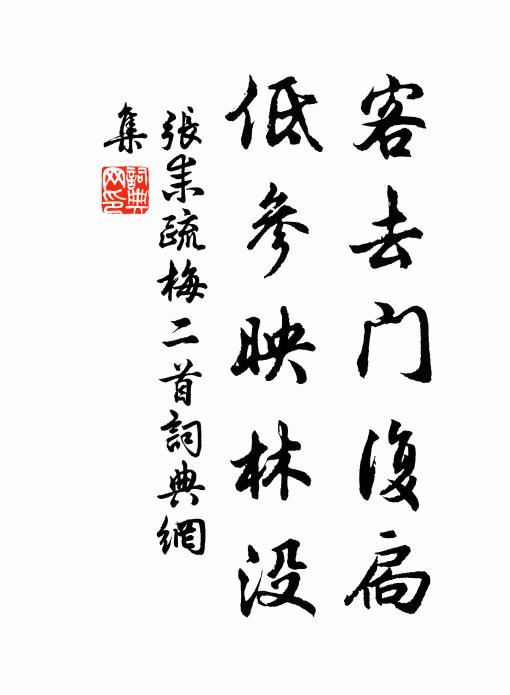 客去門復扃
低參映林没
張耒疏梅二首詞典網
集
詞典網印